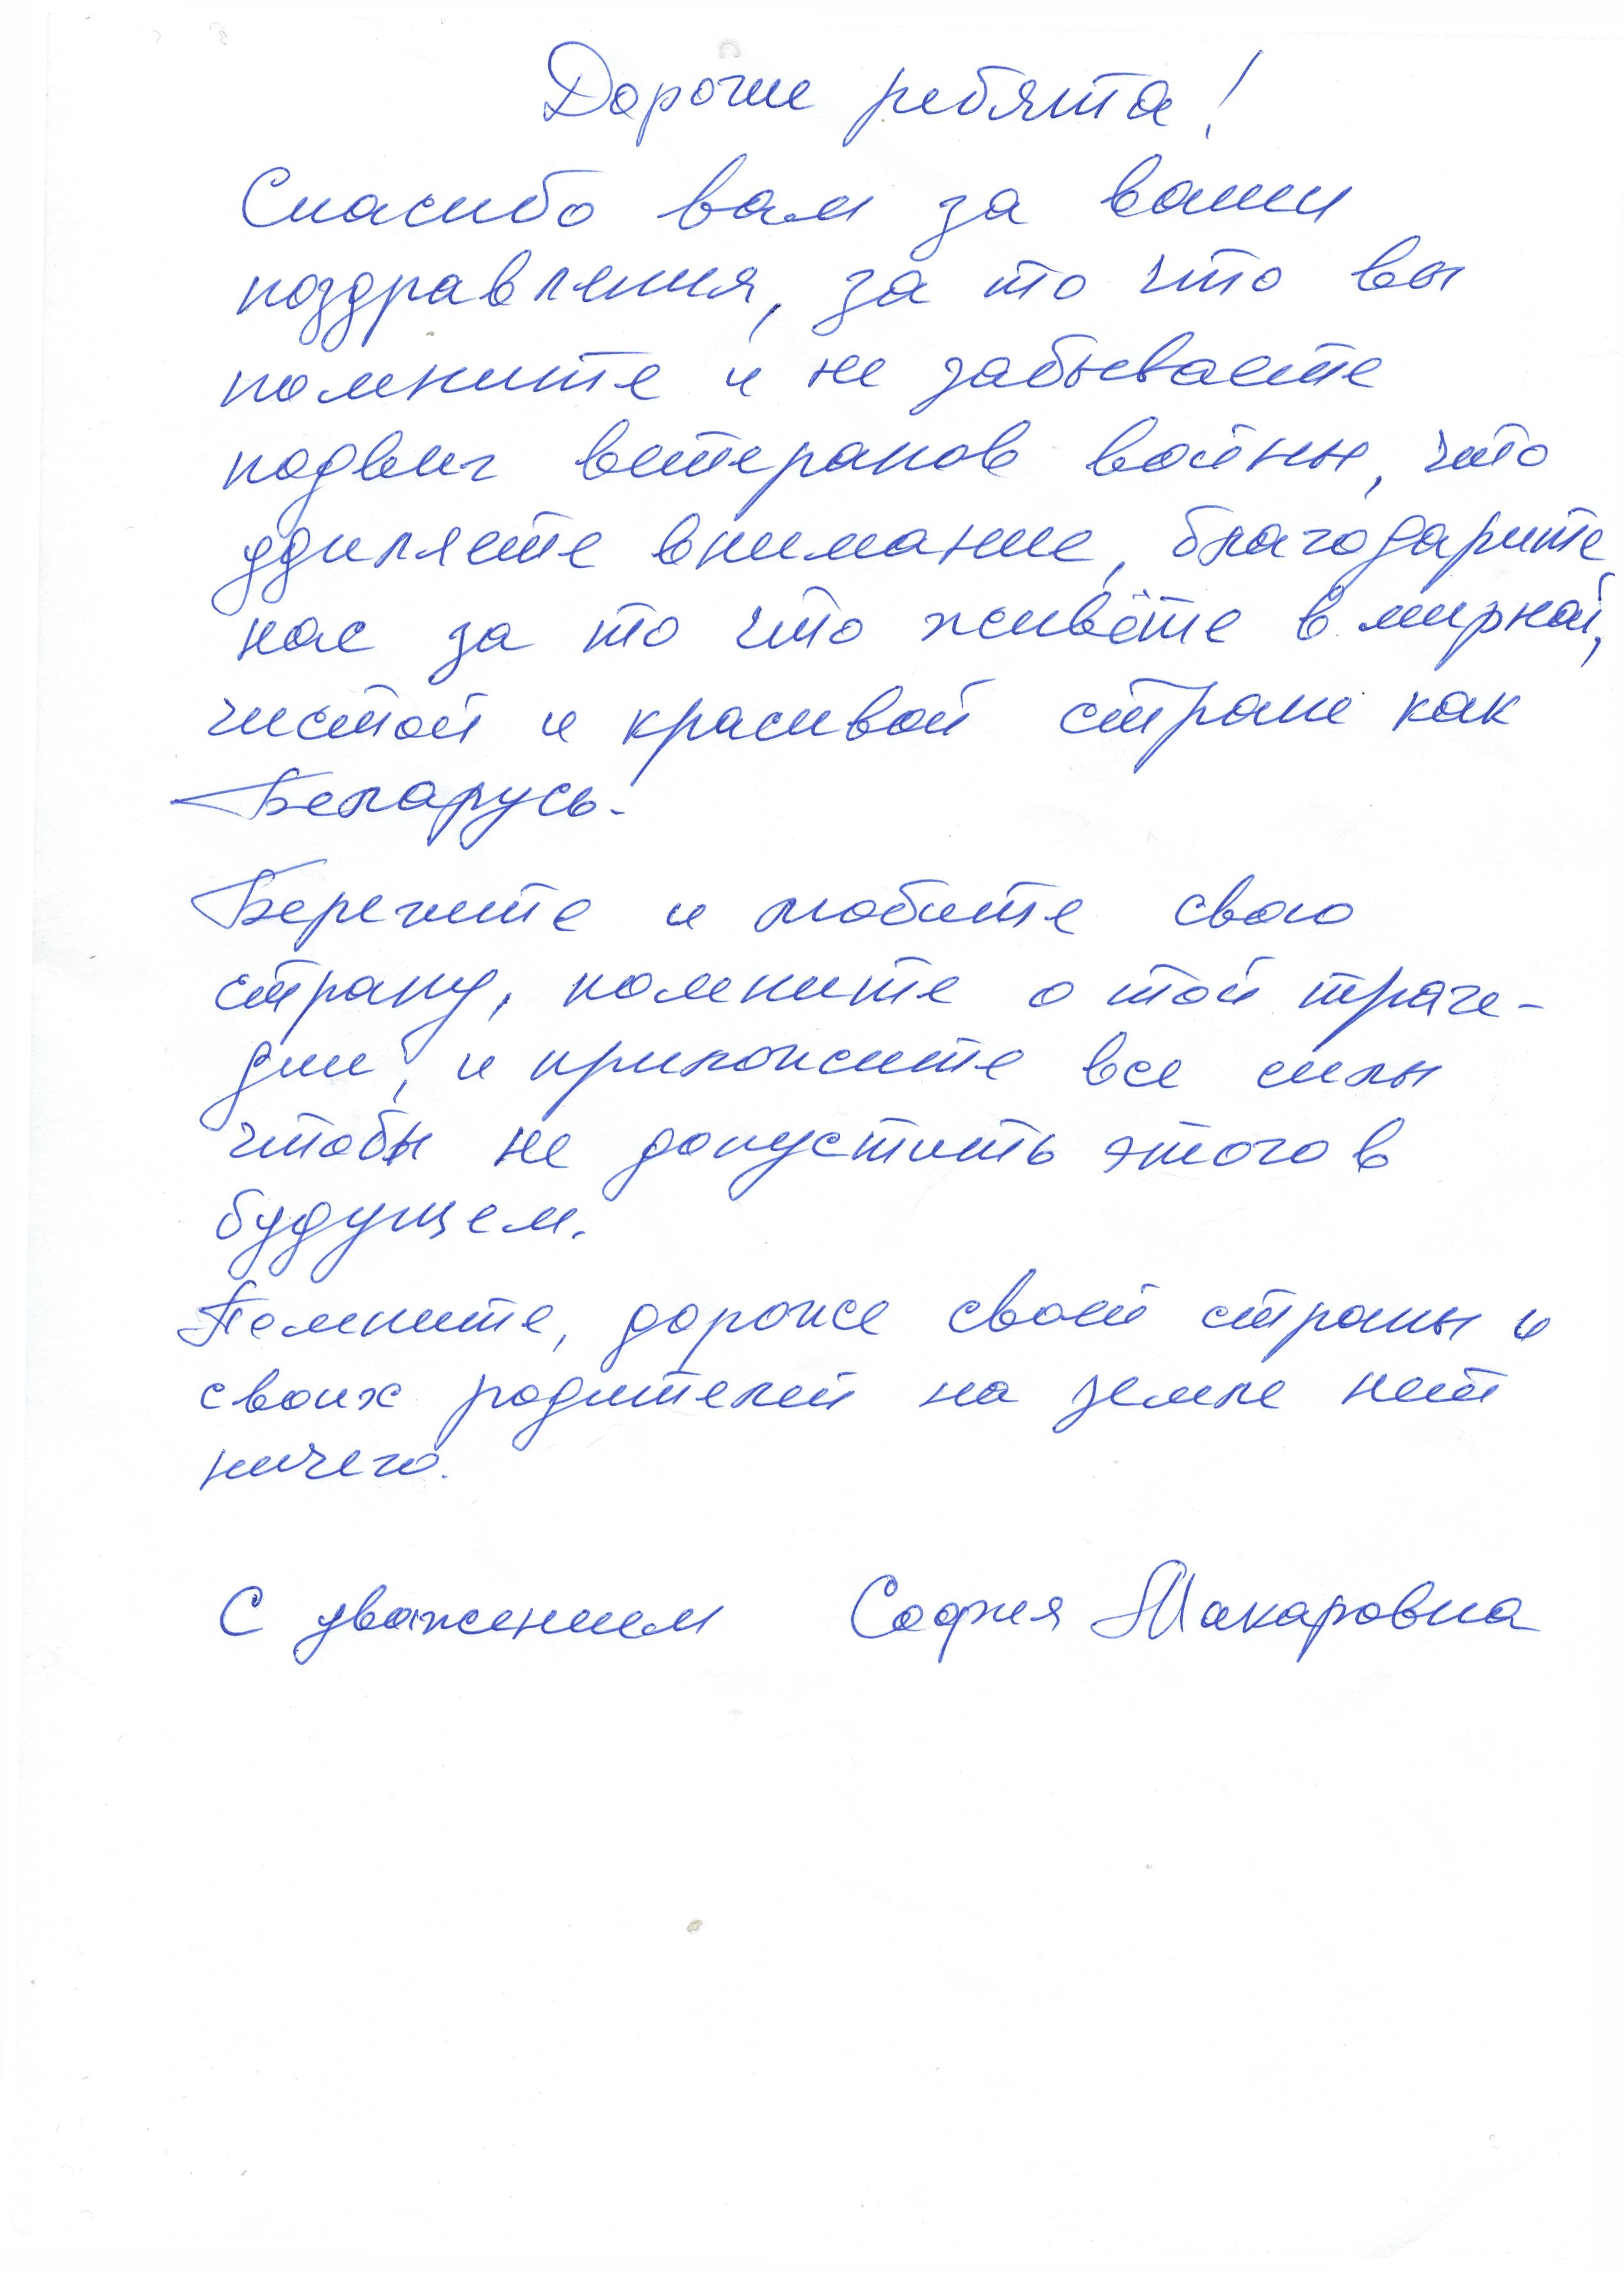 Дорогие ребята!
Спасибо вам за ваши
поздравления, за то что вы
помните и не забываете
подвиг ветеранов войны, что
уделяете внимание, благодарите
нас за то что живёте в мирной,
чистой и красивой стране как
Беларусь.
Берегите и любите свою
страну, помните о той траге-
дии, и приложите все силы
чтобы не допустить этого в
будущем.
Помните, дороже своей страны и
своих родителей на земле нет
ничего.
С уважением София Макаровна